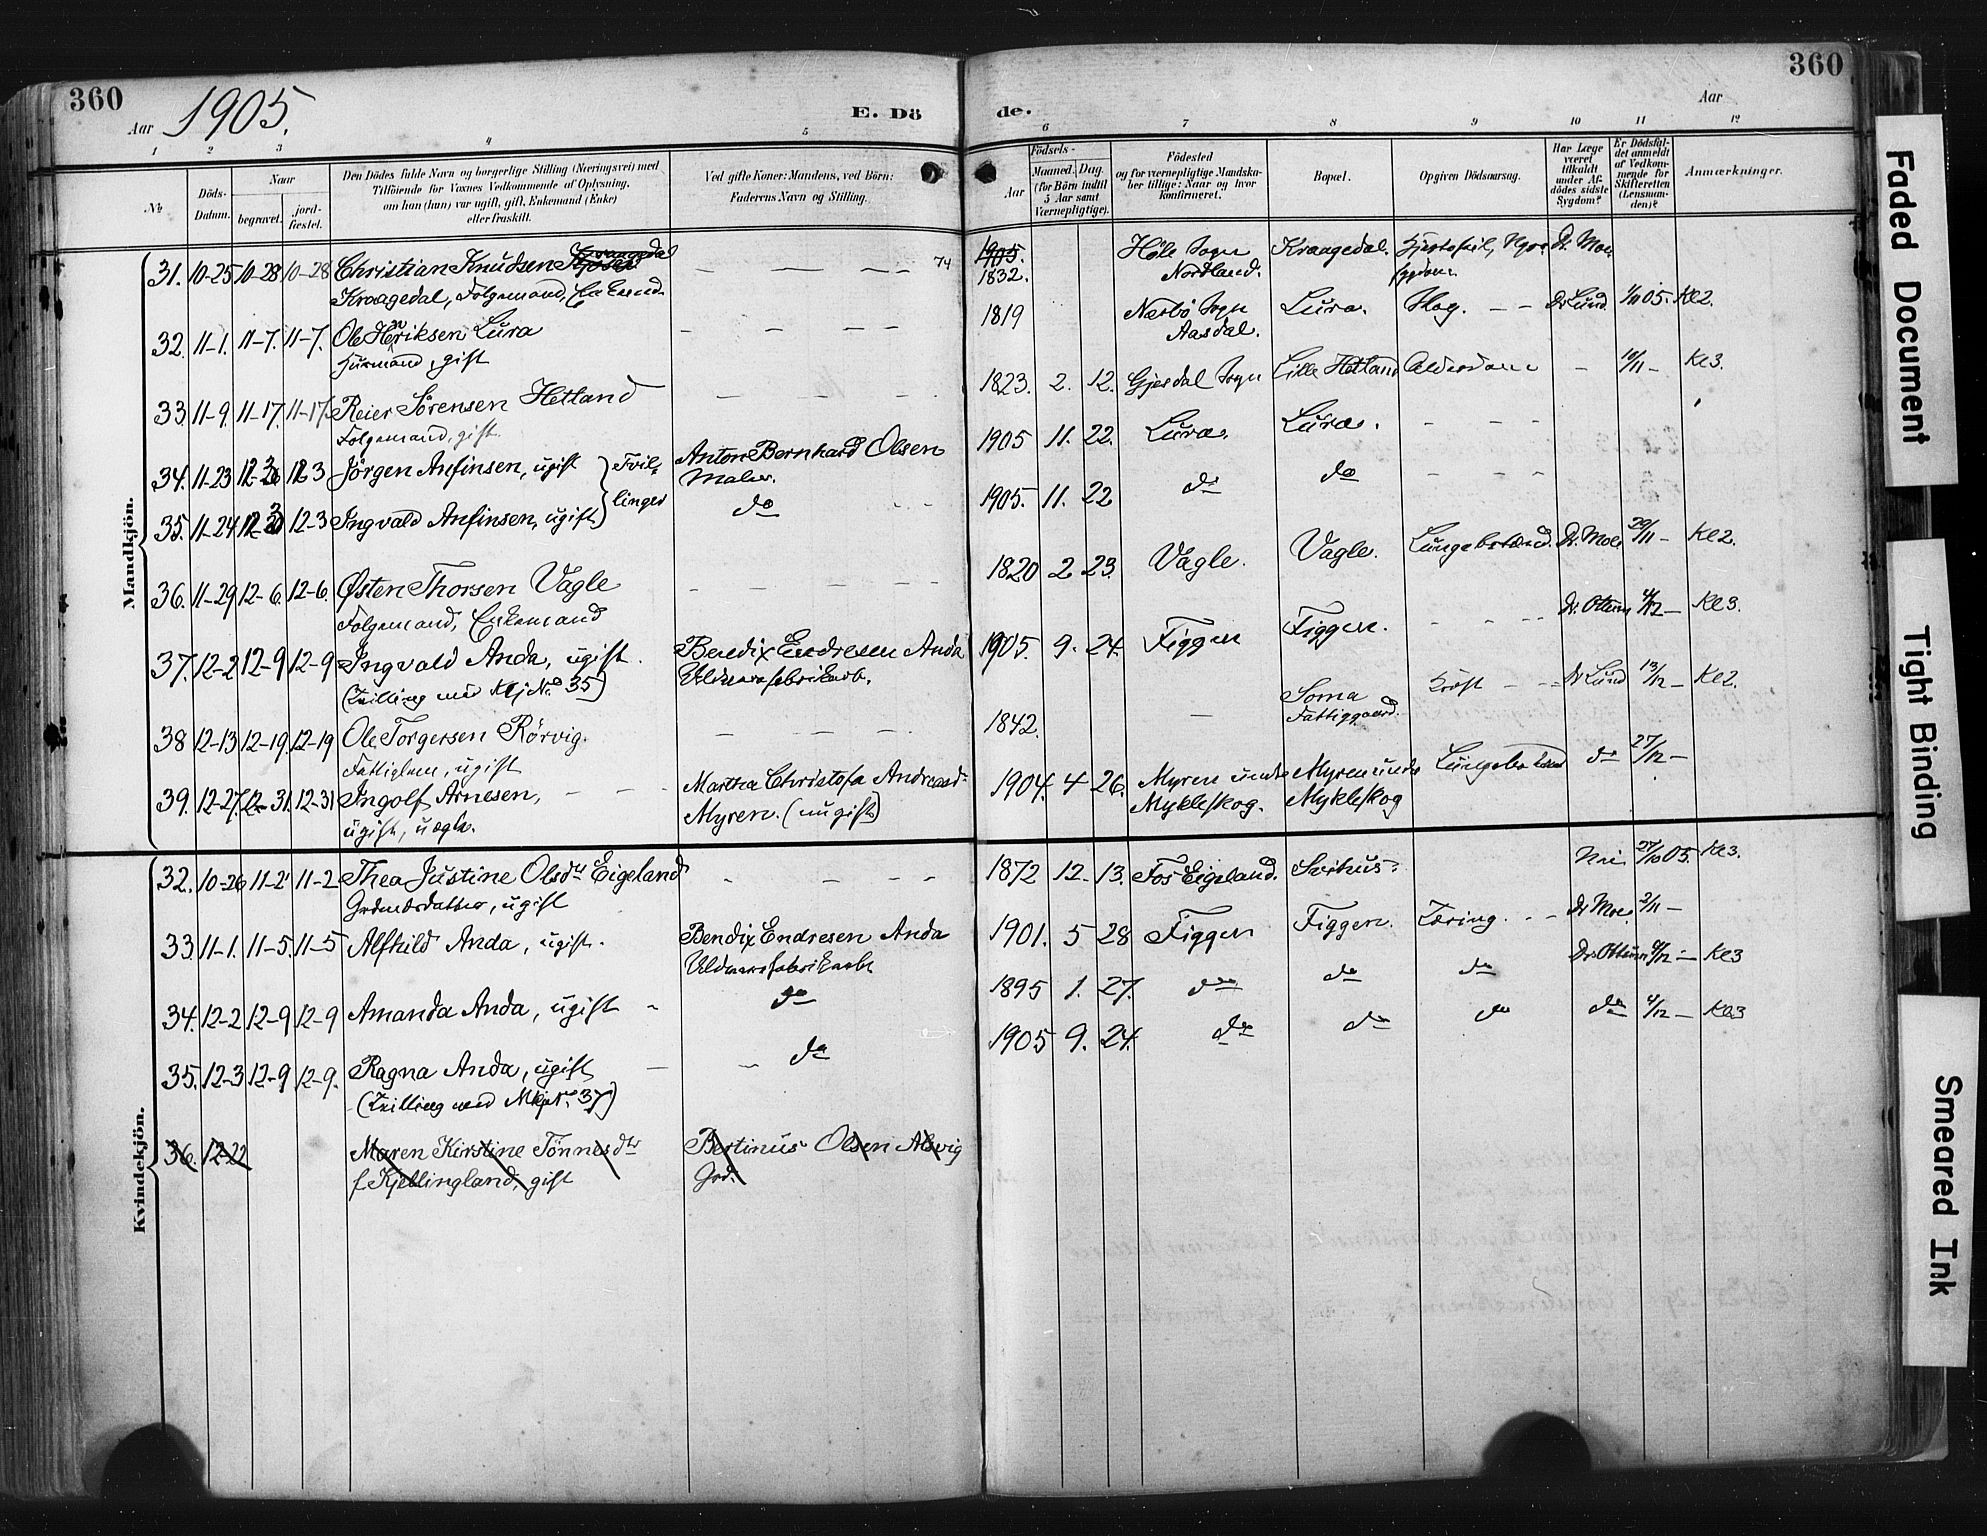 360
Aar 1905.
E. Dö
de.
Aar
360
1
2
3
4
5
6
7
8
9
10
11
12
№
Döds-
Datum.
Naar
begravet.
jord-
fæstet.
Den Dödes fulde Navn og borgerlige Stilling (Næringsvei) med
Tilföiende for Voxnes Vedkommende af Oplysning,
om han (hun) var ugift, gift, Enkemand (Enke)
eller fraskilt.
Ved gifte Koner: Mandens, ved Börn:
Faderens Navn og Stilling.
Aar
Födsels-
Maaned. Dag.
(for Börn indtil
5 Aar samt
Værnepligtige).
Födested
og for værnepligtige Mandska-
ber tillige: Naar og hvor
konfirmeret.
Bopæl.
Opgiven Dödsaarsag.
Har Læge
været
tilkaldt
under Af-
dödes sidste
Sygdom?
Er Dödsfal-
det anmeldt
af Vedkom-
mende for
Skifteretten
(Lensman-
den)?
Anmærkninger.
Mandkjön.
31. 10-25 10-28 10-28 Christian Knudsen Kraagedal — — — 74 1905. Höle Sogn Kraagedal. Dr. Moe
Kraagedal, Folgemand, Enkemd. 1832. Nordland.
32. 11-1. 11-7. 11-7. Ole Henriksen Lura — — — — 1819 Nærbö Sogn Lura. Slag. — — Dr Lund 1/11 05. Kl2.
Husmand, gift Aasdal.
33. 11-9. 11-17. 11-17. Reier Sörensen Hetland — — — — 1823. 2. 12. Gjesdal Sogn Lille Hetland Alderdom — 10/11 — Kl3.
Folgemand, gift.
34. 11-23 12-3 12-3 Jörgen Anfinsen, ugift Tvil- Anton Bernhard Olsen 1905 11. 22. Lura. Lura. — — —
Maler.
35. 11-24 12-3 12-3 Ingvald Anfinsen, ugift linger do 1905. 11. 22 do do — — —
36. 11-29 12-6. 12-6. Østen Thorsen Vagle — — — — 1820 2 23. Vagle. Vagle. Lungebetænd. Dr. Moe 29/11 — Kl2.
Folgemand, Enkemand
37. 12-2 12-9 12-9 Ingvald Anda, ugift. Bendix Endresen Anda 1905. 9. 24. Figgen Figgen. — — — Dr. Ottesen 4/12 — Kl3.
(Tvilling med Kkj No 35) Uldvarefabrikarb.
38 12-13 12-19. 12-19 Ole Torgersen Rörvig. — — — — 1842. — Soma Kræft — — Dr Lund 13/12 — Kl2.
Fattiglem, ugift Fattiggaard.
39. 12-27. 12-31. 12-31 Ingolf Arnesen, — — — Martha Christofa Andreasd. 1904. 4 26. Myren under Myren under Lungebetænd do 27/12 —
ugift, uægte. Myren. (nu gift) Mykleskog. Mykleskog
Kvindekjön.
32. 10-26 11-2 11-2 Thea Justine Olsdtr Eigeland — — — — 1872 12. 13. Fos Eigeland. Svihus. Nei 27/10 05. Kl3.
Grdmdsdatter, ugift
33. 11-1. 11-5. 11-5 Alfhild Anda, ugift. Bendix Endresen Anda 1901. 5 28 Figgen Figgen. Tæring. — — Dr Moe 2/11 —
Uldvarefabrikarb
34. 12-2 12-9 12-9 Amanda Anda, ugift — do 1895 1. 27. do do do Dr Ottesen 4/12 — Kl3
35. 12-3 12-9 12-9. Ragna Anda, ugift — — do 1905 9. 24. do do do do 4/12 — Kl3
(Tvilling med Mkj No 37)
36. 12-22 Maren Kirstine Tönnesdtr Bertinus Olsen Alsvig
f Kjellingland, gift Grd.
Faded Document
Tight Binding
Smeared Ink